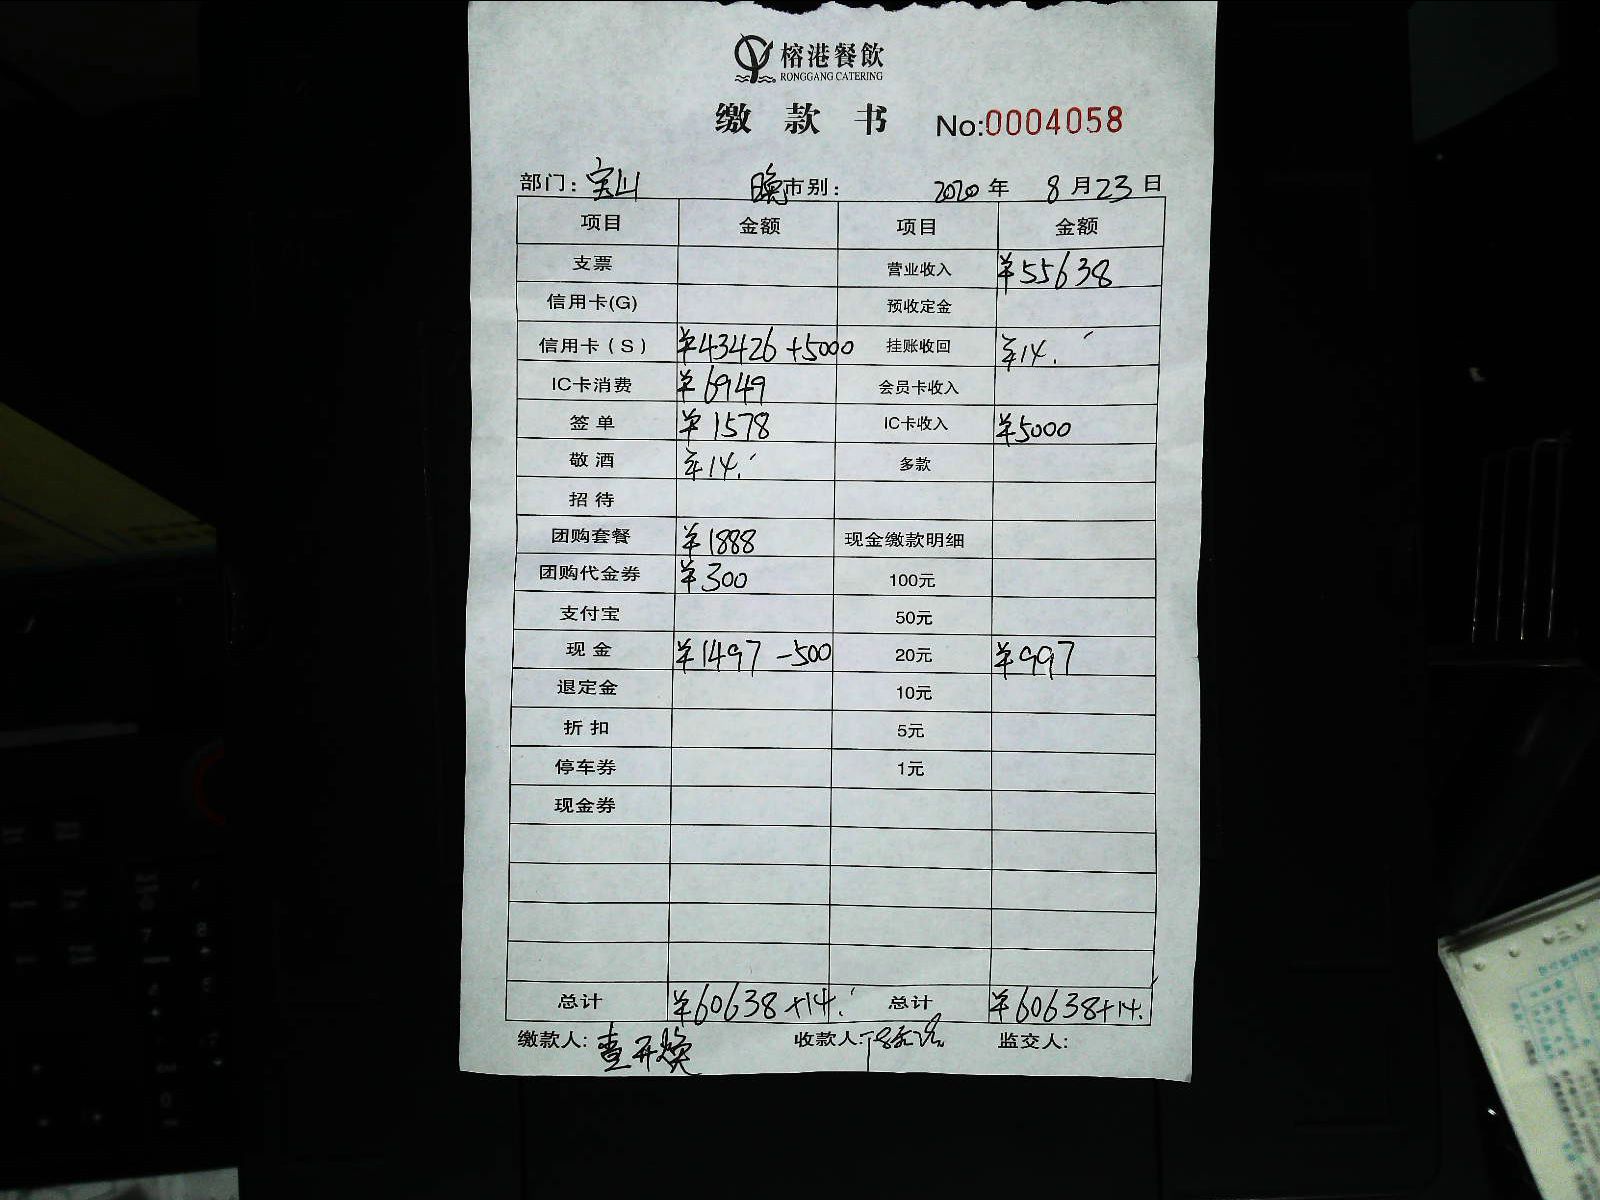 榕港餐飲
RONGGANG CATERING
缴款书 No:0004058
部门：宝山 晚市别： 2020年 8月23日
项目 金额 项目 金额
支票 营业收入 ¥55638
信用卡(G) 预收定金
信用卡（S） ¥43426+5000 挂账收回 ¥14.
IC卡消费 ¥6949 会员卡收入
签单 ¥1578 IC卡收入 ¥5000
敬酒 ¥14. 多款
招待
团购套餐 ¥1888 现金缴款明细
团购代金券 ¥300 100元
支付宝 50元
现金 ¥1497-500 20元 ¥997
退定金 10元
折扣 5元
停车券 1元
现金券
总计 ¥60638+14. 总计 ¥60638+14.
缴款人: 收款人: 监交人: